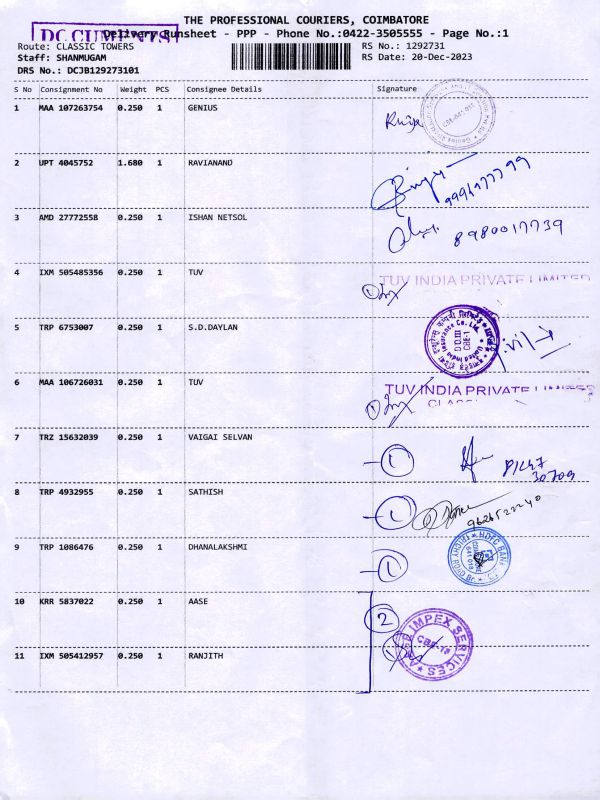 THE PROFESSIONAL COURIERS, COIMBATORE
DOCUMENTS
Delivery Runsheet - PPP - Phone No.:0422-3505555 - Page No.:1
Route: CLASSIC TOWERS RS No.: 1292731
Staff: SHANMUGAM RS Date: 20-Dec-2023
DRS No.: DCJB129273101
S No Consignment No Weight PCS Consignee Details Signature
1 MAA 107263754 0.250 1 GENIUS
2 UPT 4045752 1.680 1 RAVIANAND
3 AMD 27772558 0.250 1 ISHAN NETSOL
8980017739
4 IXM 505485356 0.250 1 TUV
TUV INDIA PRIVATE LIMITED
5 TRP 6753007 0.250 1 S.D.DAYLAN
6 MAA 106726031 0.250 1 TUV
TUV INDIA PRIVATE
7 TRZ 15632039 0.250 1 VAIGAI SELVAN
1
8 TRP 4932955 0.250 1 SATHISH
1
9 TRP 1086476 0.250 1 DHANALAKSHMI
HDFC BANK
1
10 KRR 5837022 0.250 1 AASE
2
IMPEX SERVICES
CBE-18
11 IXM 505412957 0.250 1 RANJITH